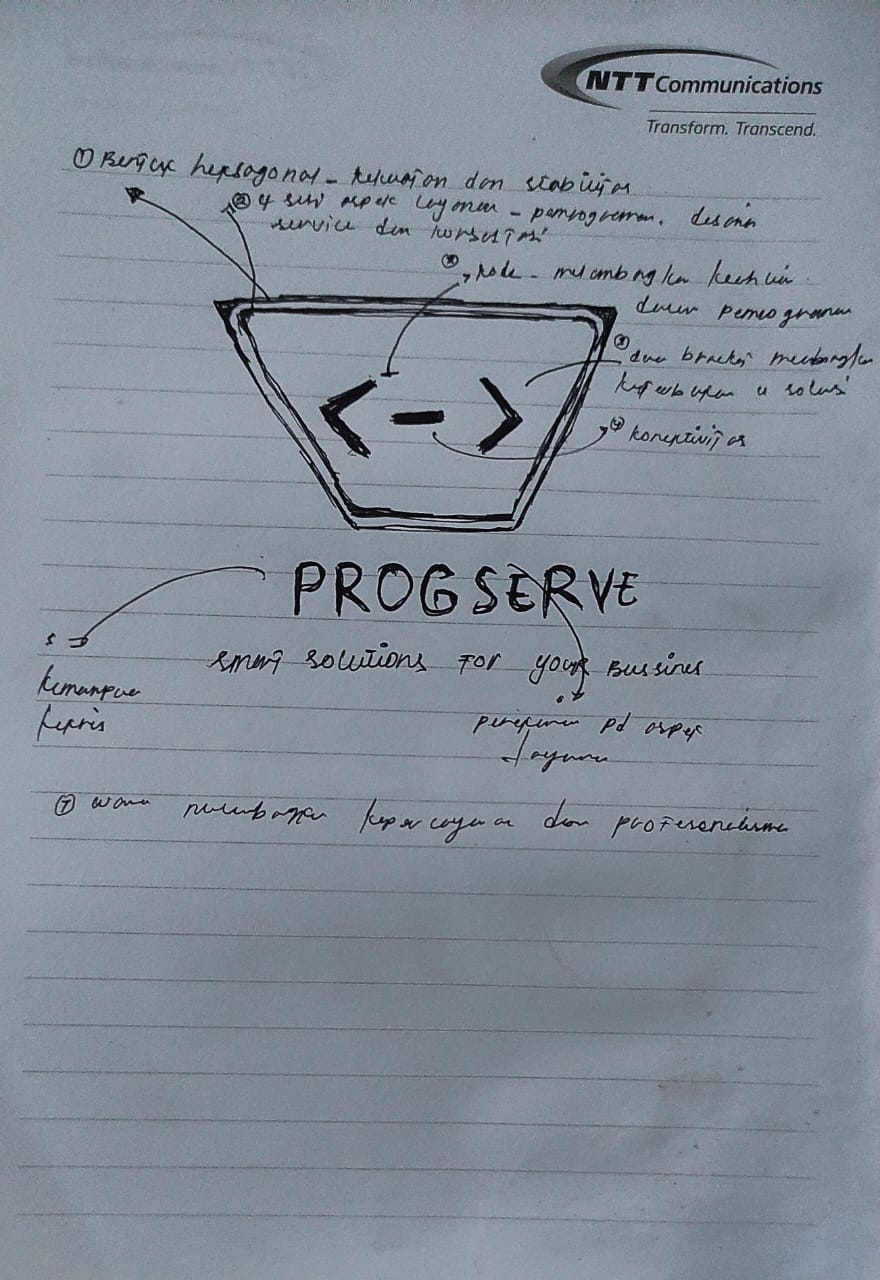 NTT Communications
Transform. Transcend.
① Bentuk heksagonal - kekuatan dan stabilitas
② 4 sisi aspek layanan - pemrograman. desain
service dan konsultasi
③ kode - melambangkan
dalam pemrograman
③ dua bracket melambangkan
u solusi
④ konektivitas
< - >
PROGSERVE
smart solutions for your Bussines
5
kemampuan
teknis
pd aspek
layanan
⑦ warna melambangkan kepercayaan dan profesionalisme